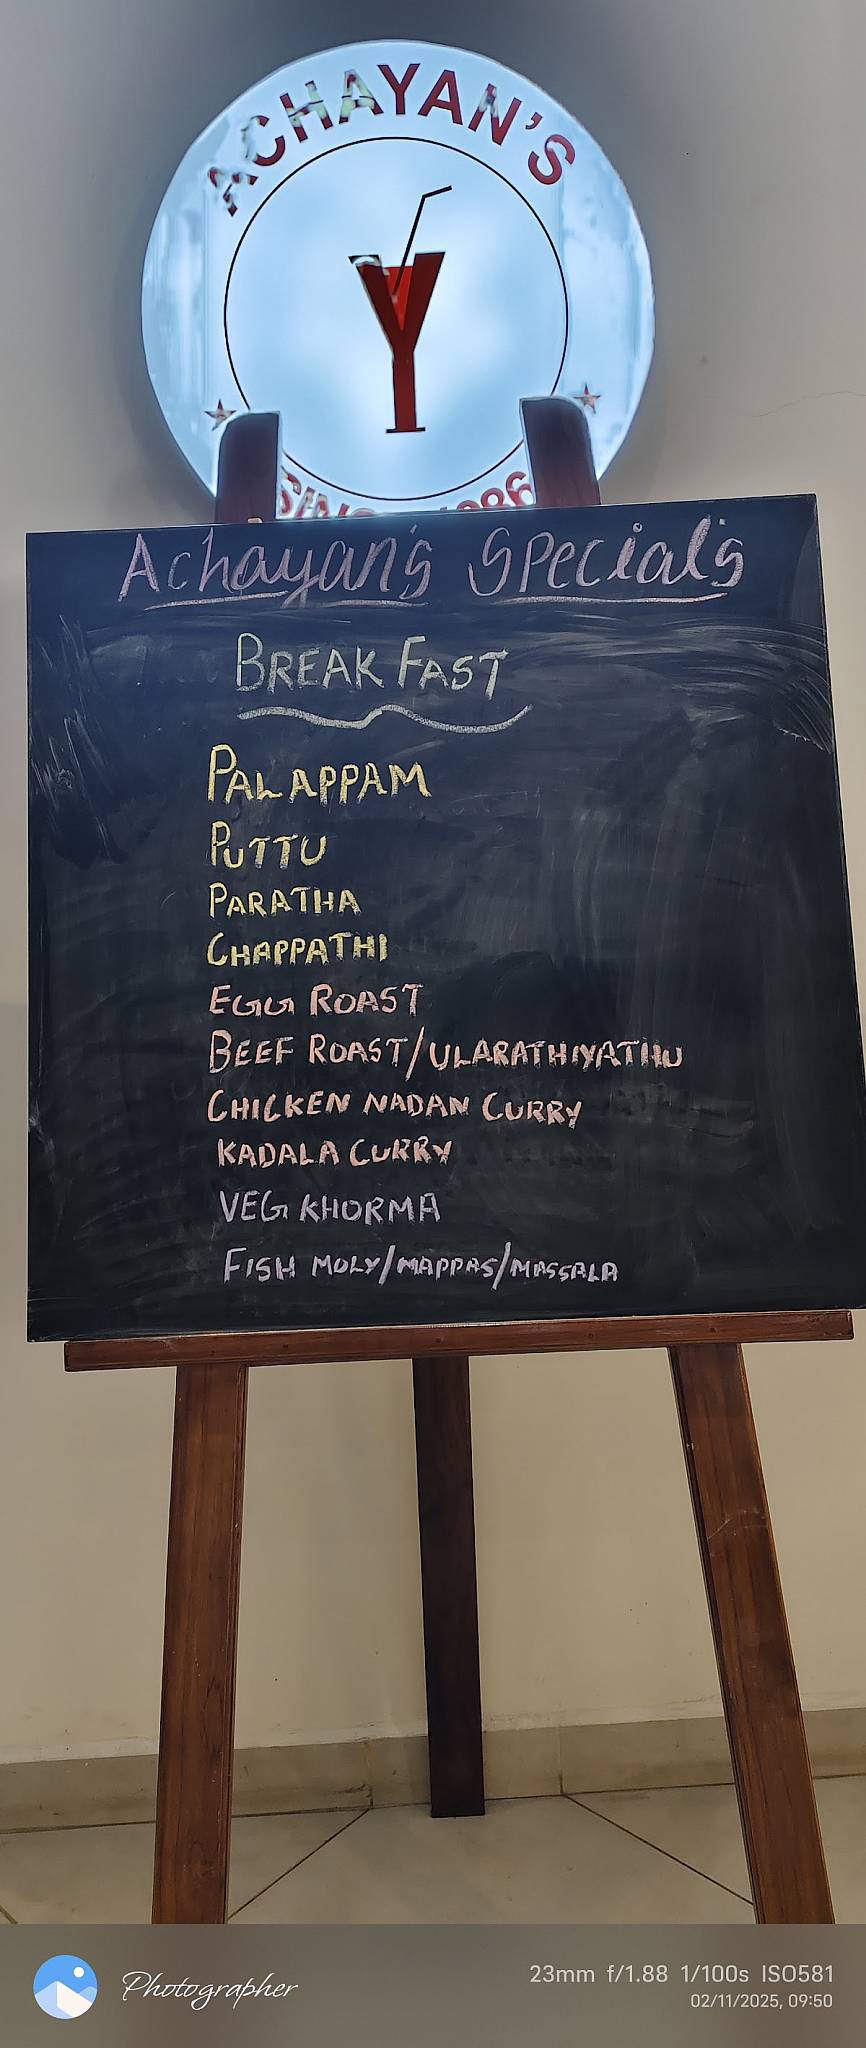 ACHAYAN'S
SINCE 1986
Achayan's Special's
BREAKFAST
PALAPPAM
PUTTU
PARATHA
CHAPPATHI
EGG ROAST
BEEF ROAST/ULARATHIYATHU
CHICKEN NADAN CURRY
KADALA CURRY
VEG KHORMA
FISH MOLY/MAPPAS/MASSALA
Photographer
23mm f/1.88 1/100s ISO581
02/11/2025, 09:50